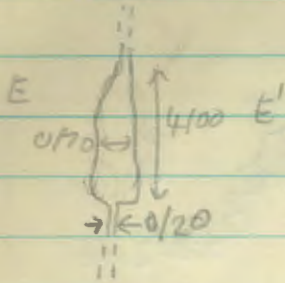 E E'
0/70
4/00
0/20